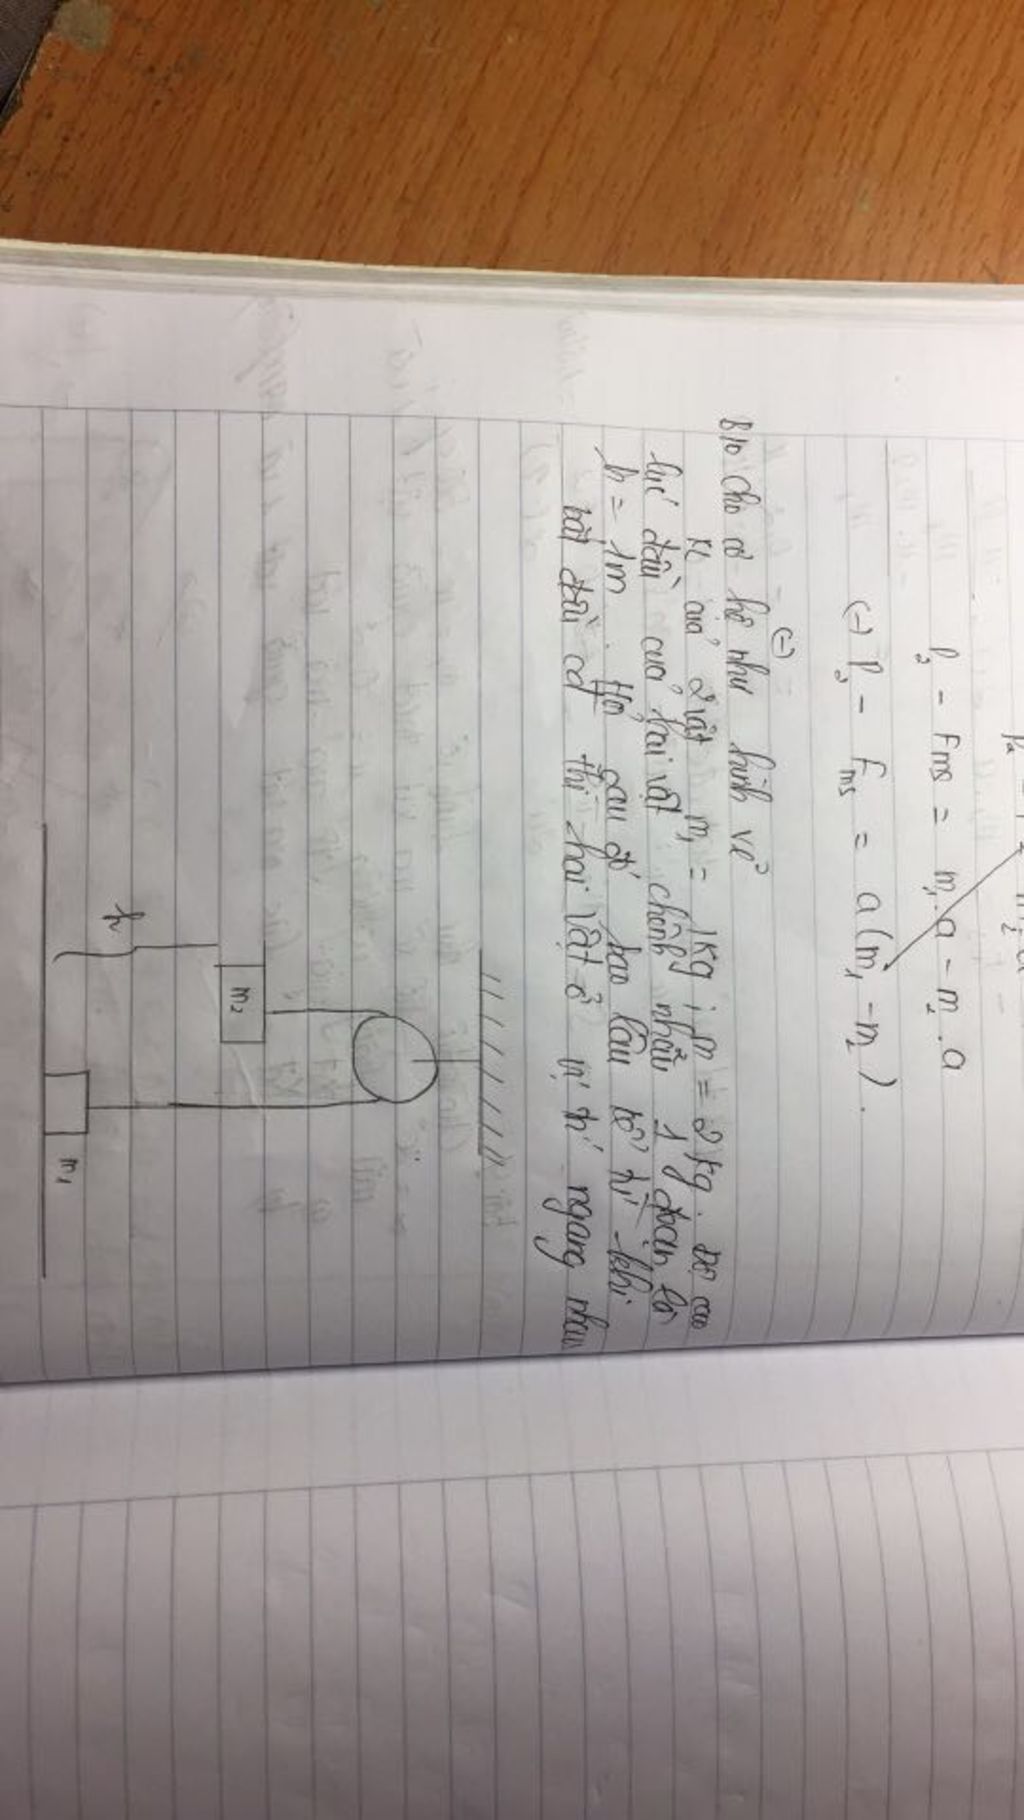 P₂ - Fms = m₁.a - m₂.a
(-) P₂ - Fms = a(m₁ - m₂).
(-)
B10 cho cơ hệ như hình vẽ
KL của 2 vật m₁ = 1kg ; m = 2kg. Độ cao
lúc đầu của hai vật chênh nhau 1 đoạn là
h = 1m. Hỏi sau đó bao lâu kể từ khi
bắt đầu cđ thì hai vật ở vị trí ngang nhau
m₂
h
m₁